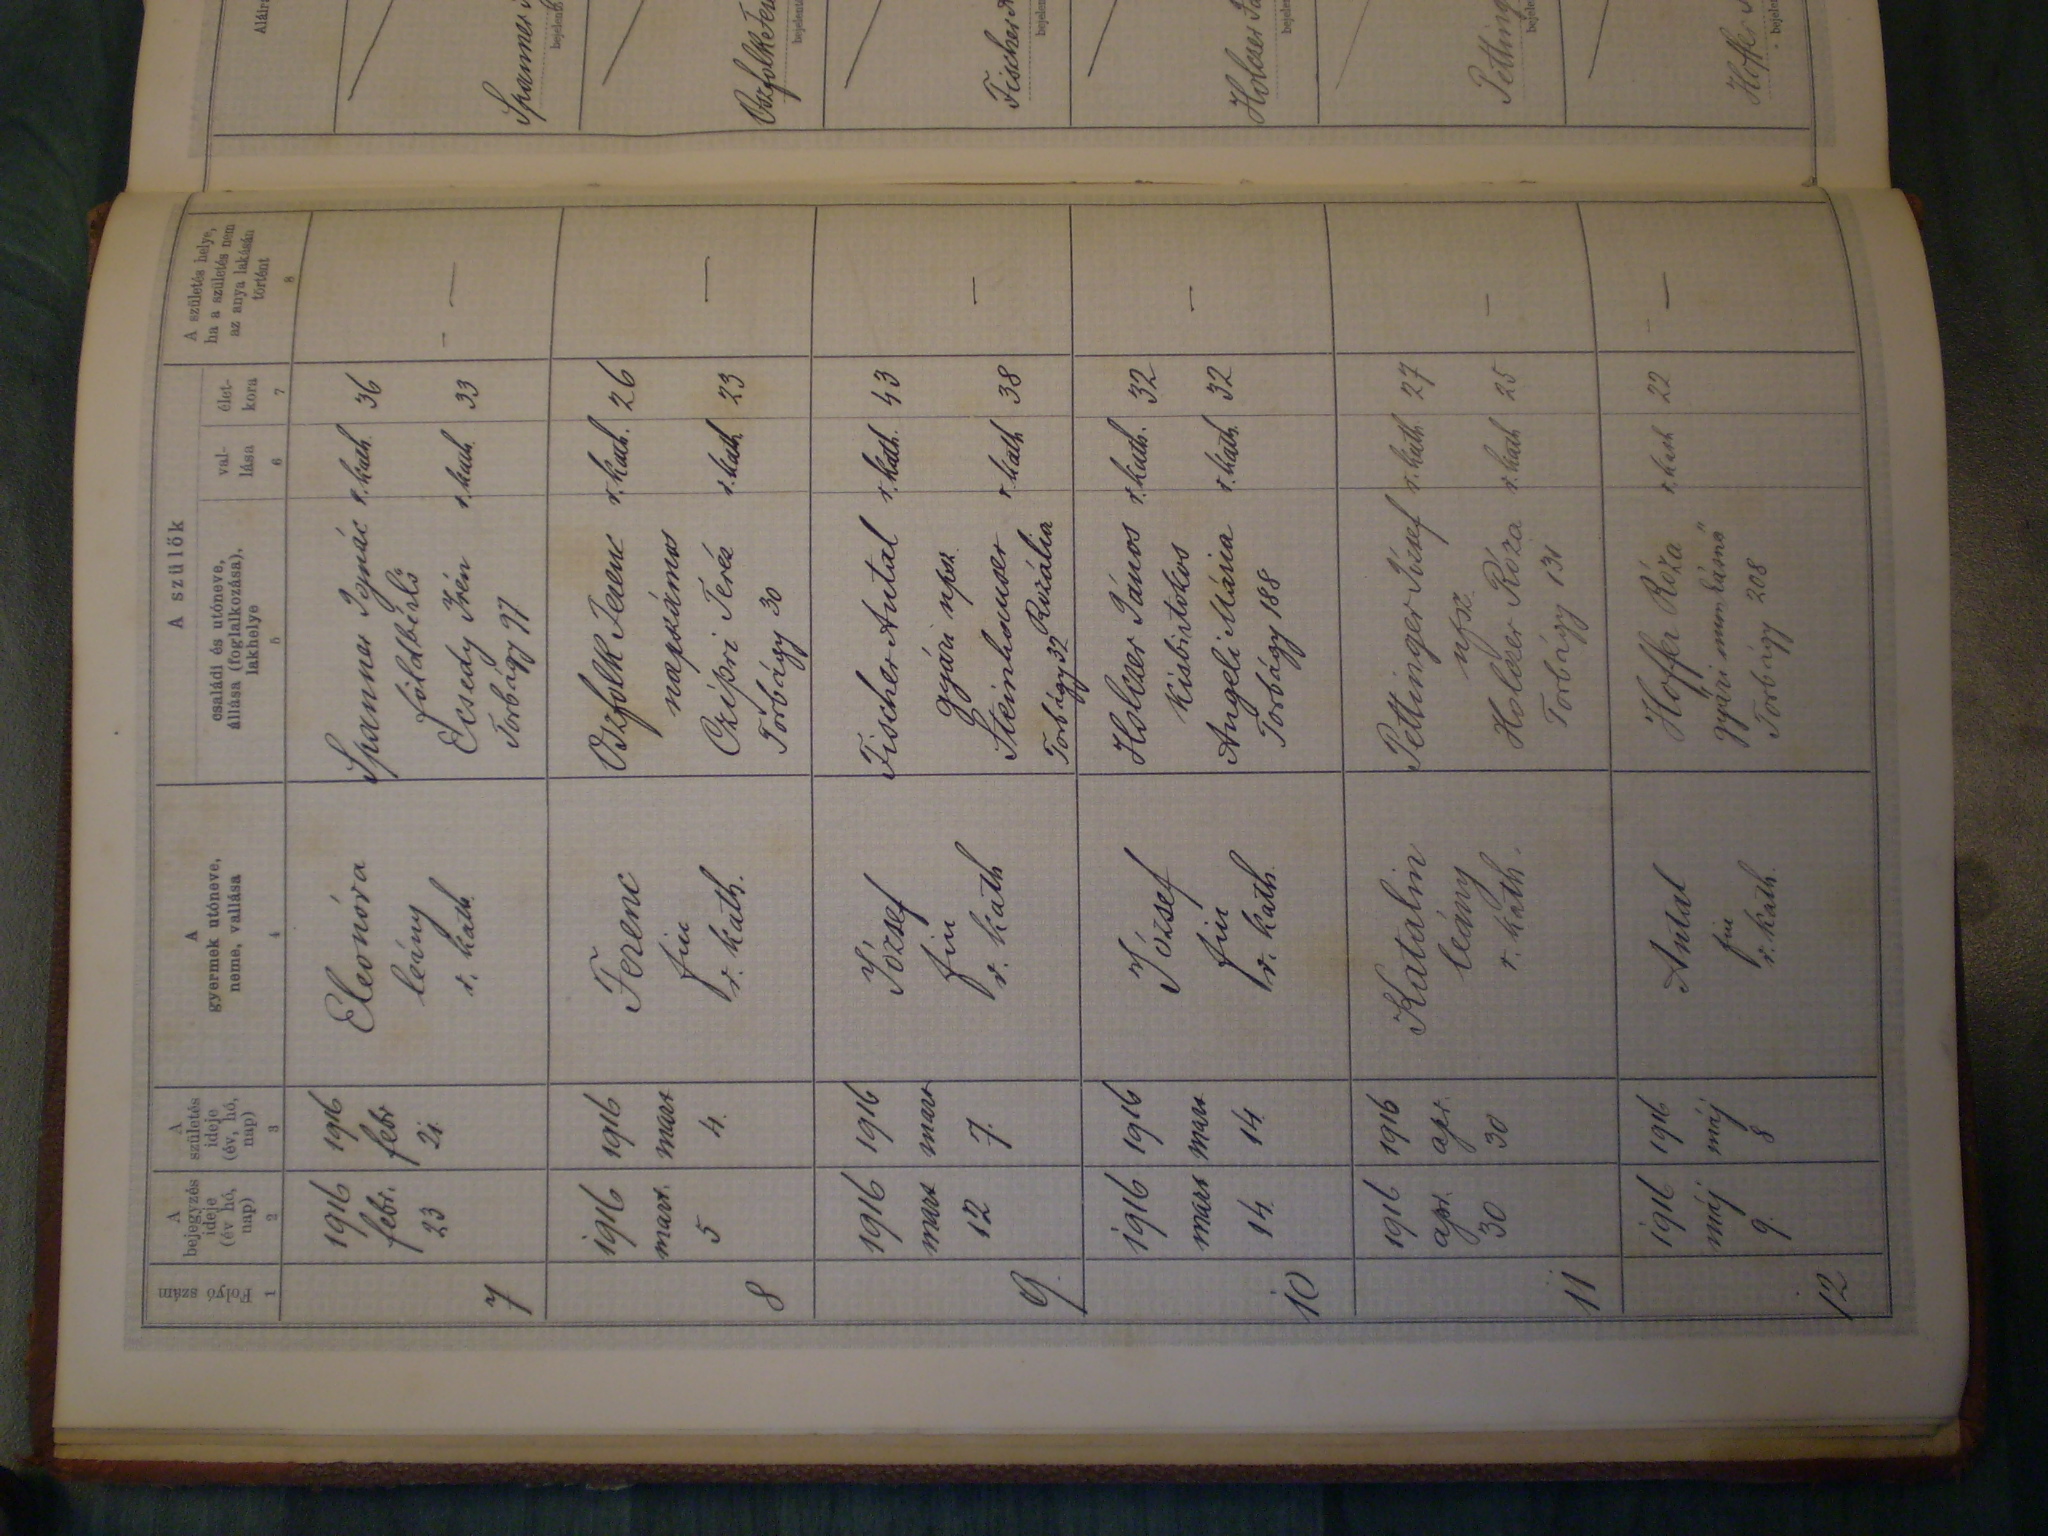 Folyó szám
1
A
bejegyzés
ideje
(év hó,
nap)
2
A
születés
ideje
(év, hó,
nap)
3
A
gyermek utóneve,
neme, vallása
4
A szülők
családi és utóneve,
állása (foglalkozása),
lakhelye
5
val-
lása
6
élet-
kora
7
A születés helye,
ha a születés nem
az anya lakásán
történt
8
7
1916
febr.
23
1916
febr
21.
Eleonóra
leány
r. kath.
Spanner Ignác r. kath. 36
földbérlő
Ecsedy Irén r. kath. 33
Torbágy 97
8
1916
mart.
5
1916
mart
4.
Ferenc
fiu
r. kath.
Oszfolk Ferenc r. kath. 26
napszámos
Czipri Teréz r. kath. 23
Torbágy 30
9.
1916
mart
12
1916
mart
7.
József
fiu
r. kath
Fischer Antal r. kath. 43
gyári npsz.
Steinhauser r. kath 38
Rozália
Torbágy 32
10
1916
mart
14.
1916
mart
14.
József
fiu
r. kath.
Holczer János r. kath. 32
kisbirtokos
Angeli Mária r. kath. 32
Torbágy 188
11
1916
apr.
30
1916
apr.
30
Katalin
leány
r. kath.
Pettinger József r. kath 27
npsz.
Holczer Róza r. kath 25
Torbágy 131
12
1916
máj
9.
1916
máj
8
Antal
fiu
r. kath.
Hoffer Róza r. kath 22
gyári munkásnő
Torbágy 208
Aláírá
Spanner
bejelentő
Oszfolk Fer
bejelentő
Fischer A
bejelen
Holczer Já
bejelen
Petting
bejelen
Hoffer
bejelen